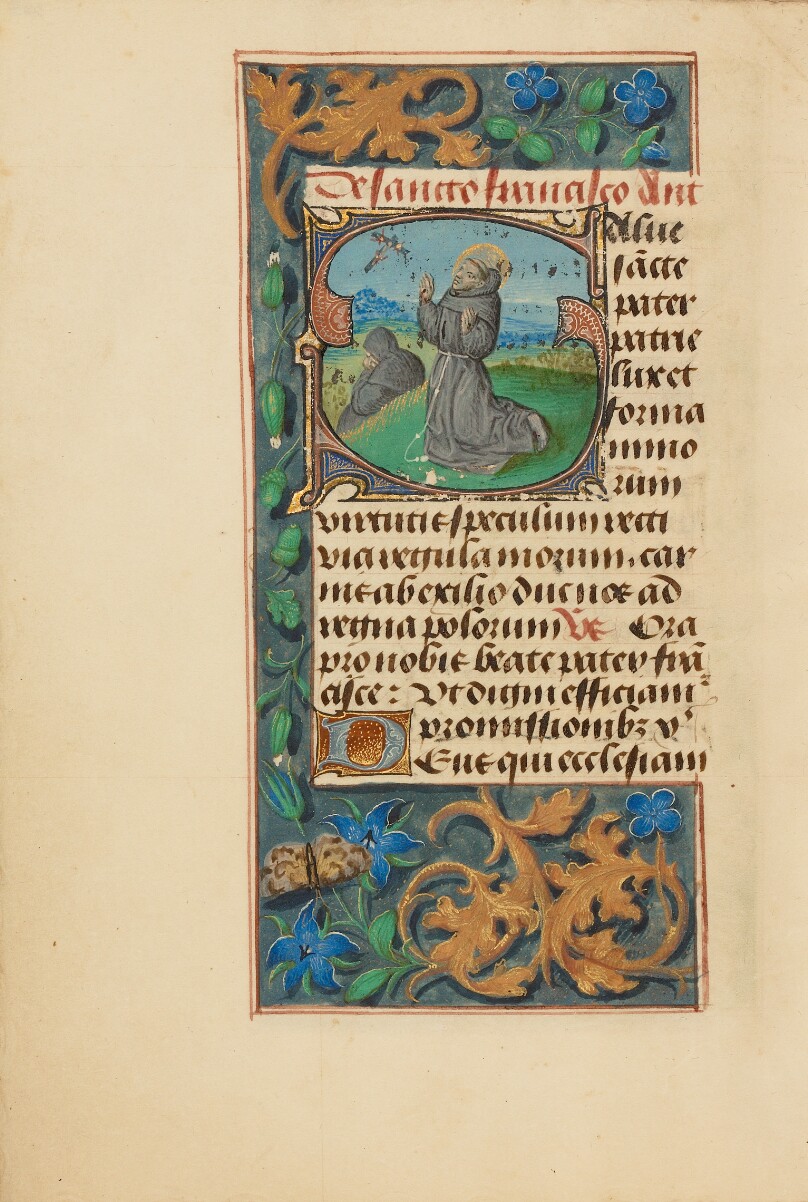 De sancto francisco Ant
Salue
sācte
pater
patrie
lux et
forma
mino
rum
virtutis speculum recti
via regula morum. car
nis ab exilio duc nos ad
regna polorum Vs Ora
pro nobis beate pater frā
cisce: Vt digni efficiam᷑
promissionibꝫ xp̄i
Deus qui ecclesiam